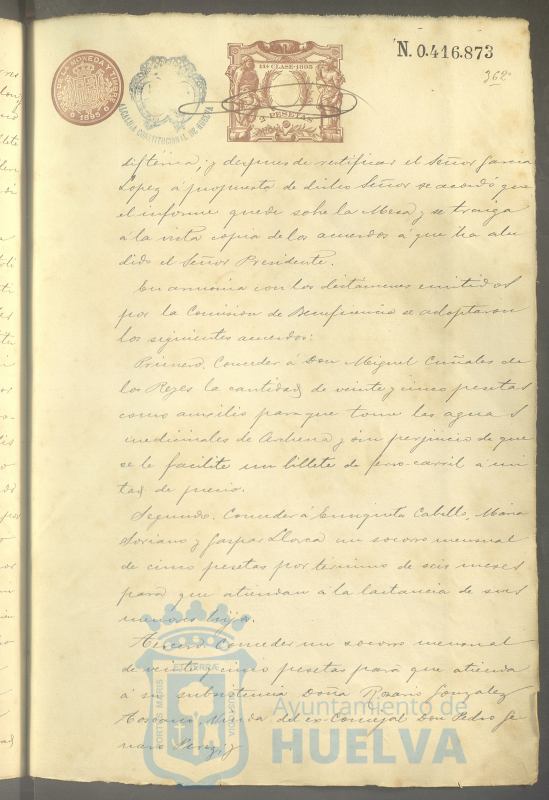 N. 0.416.873
362
11ª CLASE-1895
2 PESETAS
1895
ALCALDIA CONSTITUCIONAL DE HUELVA
distémia; y despues de rectificar el Señor Garcia
Lopez á propuesta de dicho Señor se acordó que
el informe quede sobre la Mesa y se traiga
á la vista copia de los acuerdos á que ha alu
dido el Señor Presidente.
En armonia con los dictamenes emitidos
por la Comision de Beneficencia se adoptaron
los siguientes acuerdos:
Primero. Conceder á Don Miguel de
los Reyes la cantidad de veinte y cinco pesetas
como auxilio para que tome las aguas
medicinales de Archena y sin perjuicio de que
se le facilite un billete de ferro-carril á mi
tad de precio.
Segundo. Conceder á Enriqueta Cabello, Maria
Soriano y Gaspar Llorca un socorro mensual
de cinco pesetas por término de seis meses
para que atiendan á la lactancia de sus
menores hijos.
Tercero. Conceder un socorro mensual
de veinte y cinco pesetas para que atienda
á su subsistencia Doña Rosario Gonzalez
Viuda del ex-Concejal Don Pedro Ge
naro Perez, y
PORTUS MARIS ET TERRAE CUSTODIA
Ayuntamiento de
HUELVA